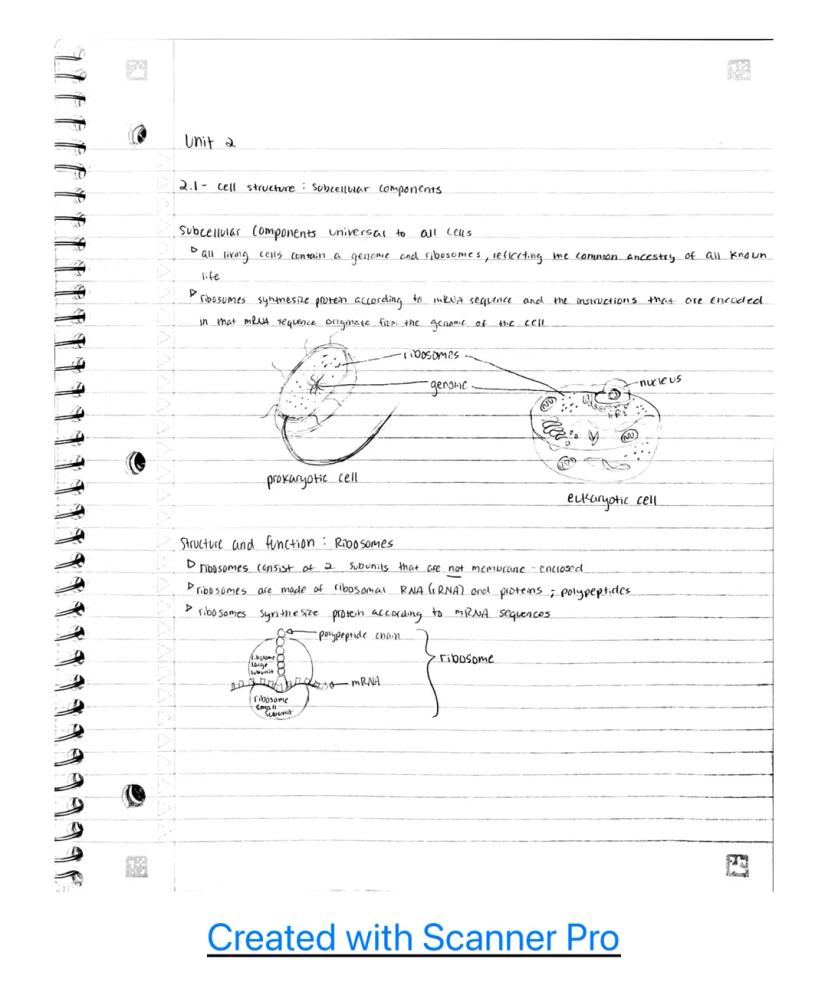 Unit 2
2.1 - cell structure : subcellular components
Subcellular components universal to all cells
▷ all living cells contain a genome and ribosomes, reflecting the common ancestry of all known
life
▷ ribosomes synthesize protein according to mRNA sequence and the instructions that are encoded
in that mRNA sequence originate from the genome of the cell
ribosomes
genome
nucleus
prokaryotic cell
eukaryotic cell
Structure and function : Ribosomes
▷ ribosomes consist of 2 subunits that are not membrane-enclosed
▷ ribosomes are made of ribosomal RNA (rRNA) and proteins ; polypeptides
▷ ribosomes synthesize protein according to mRNA sequences
polypeptide chain
ribosome
large
subunit
ribosome
mRNA
ribosome
small
subunit
Created with Scanner Pro